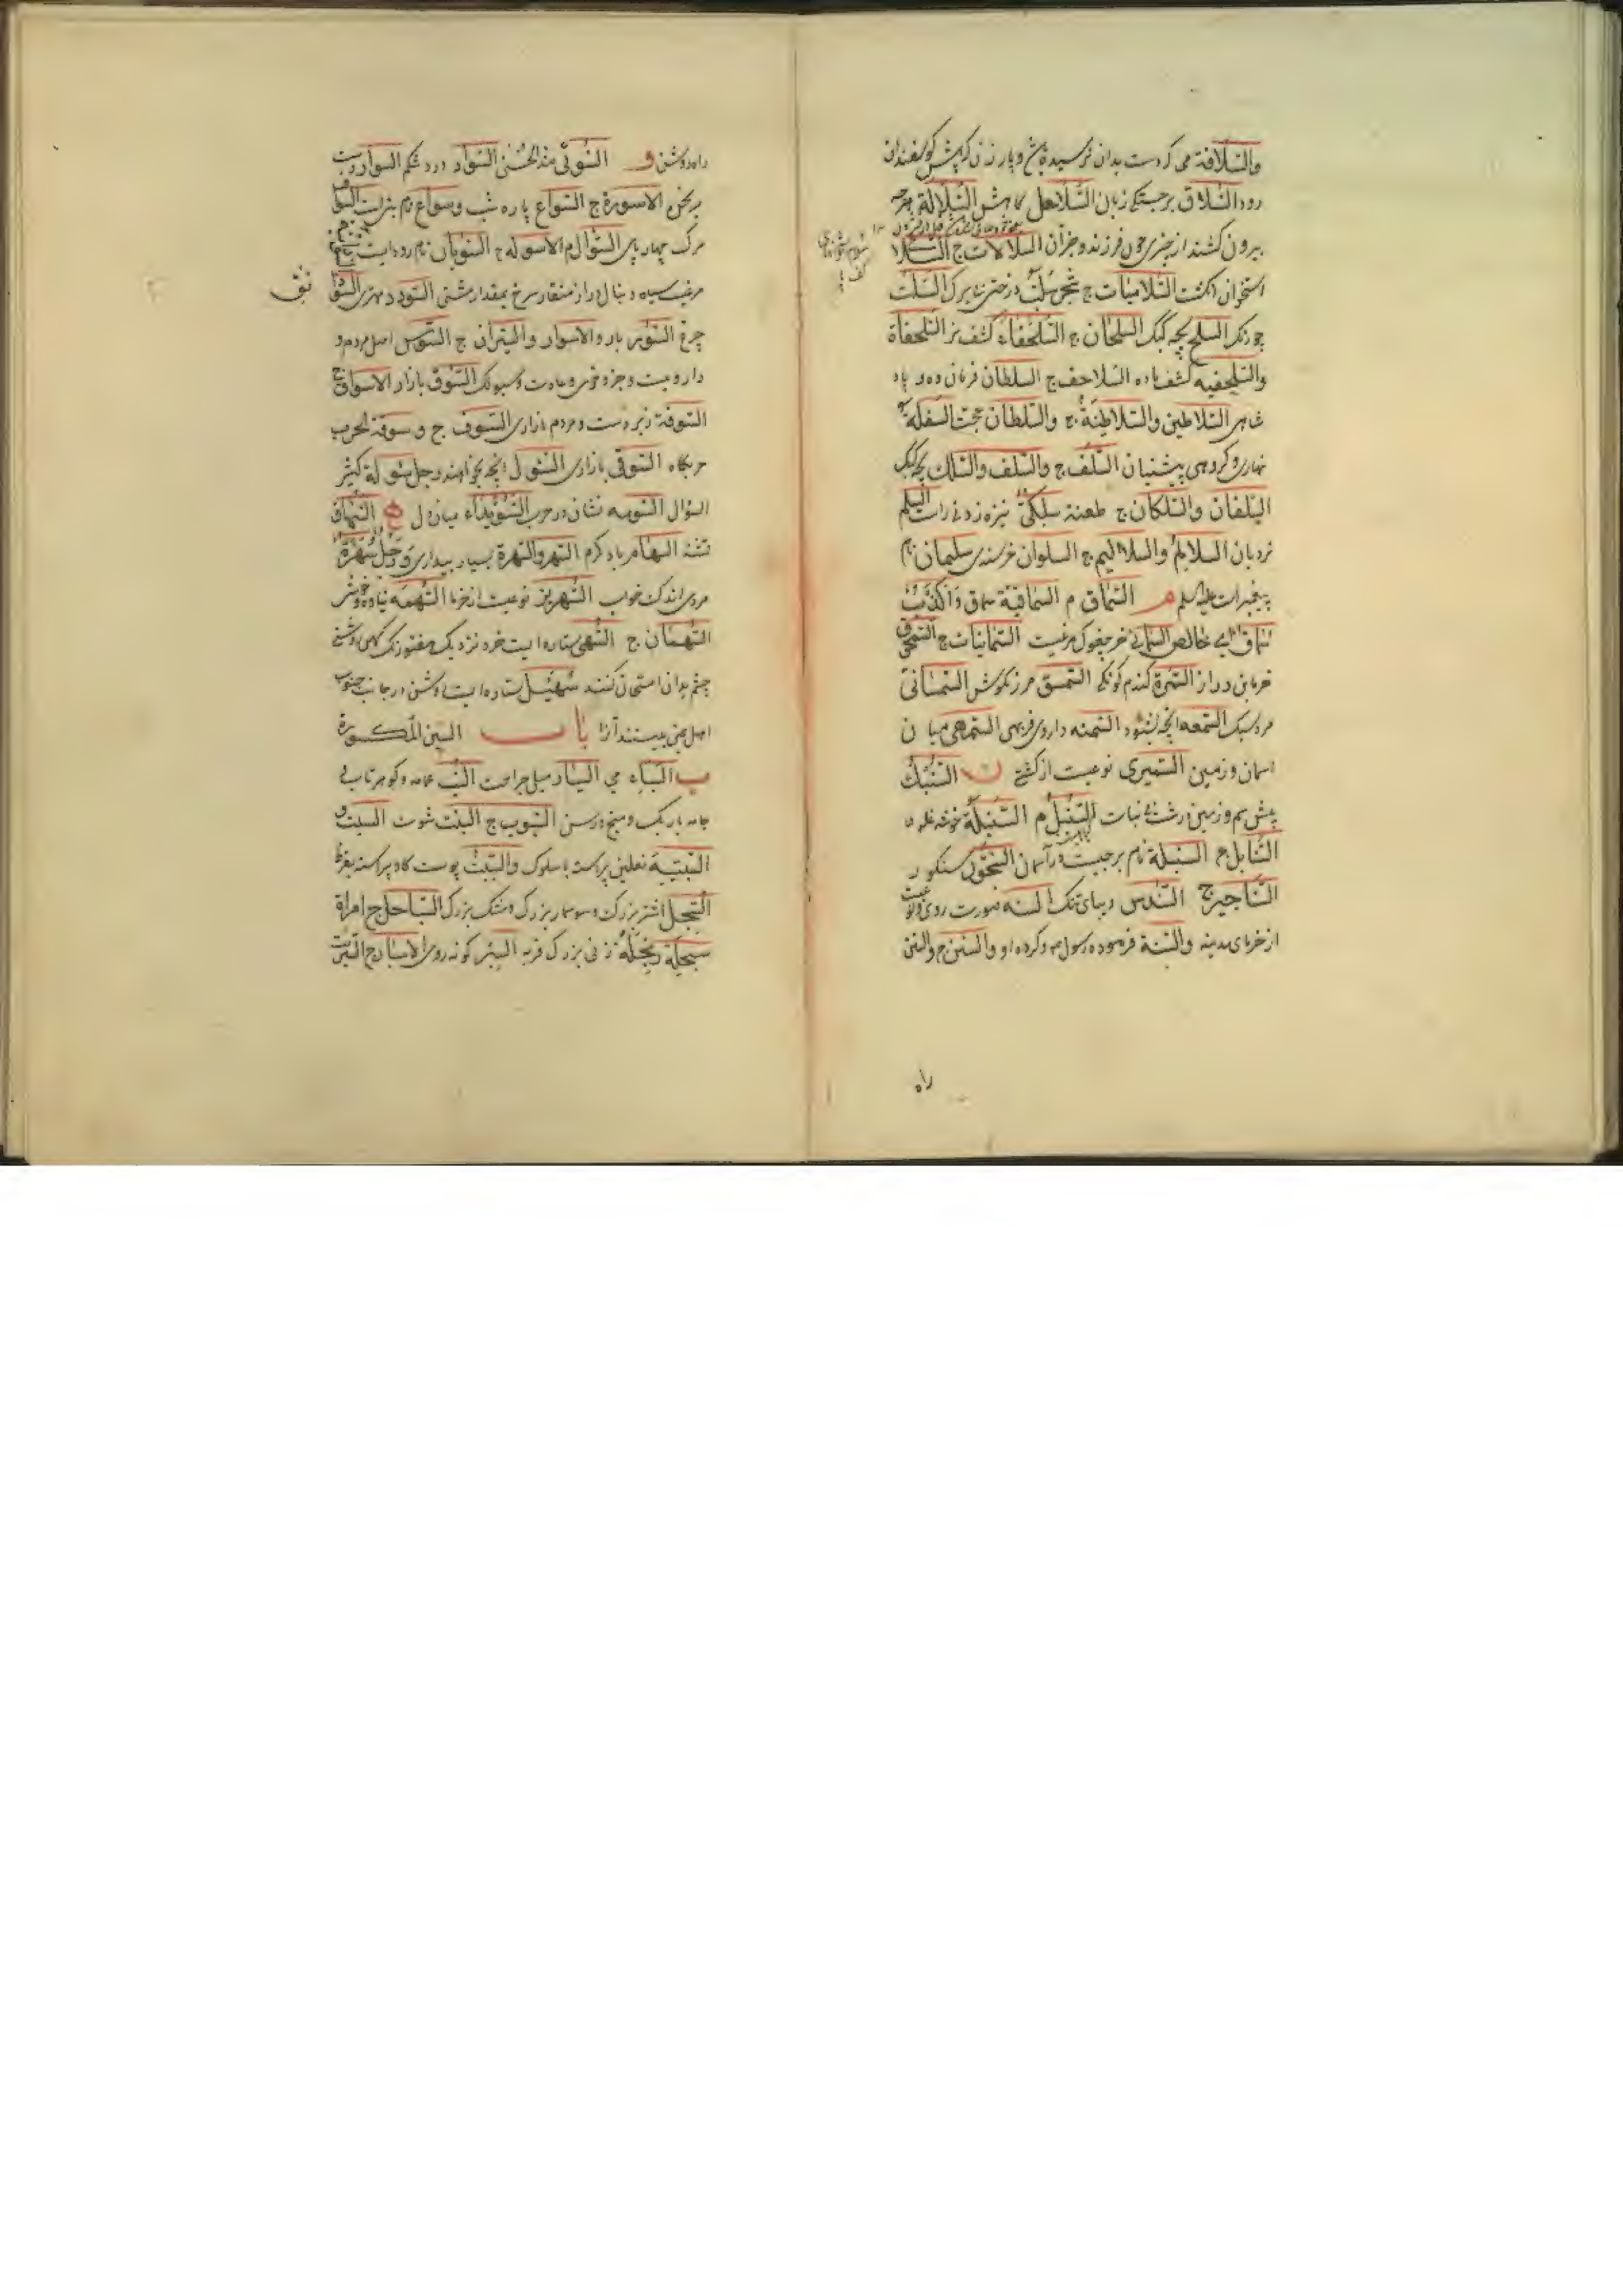 والسّلافة می که دست بدان نرسیده باشد و پاره زن که پیش گوسفندان
رود السّلاق برجستگی زبان السّلال کاهش السّلالة هرچه
بیرون کشند از چیزی چون فرزند و جز آن السّلالات ج السّلا
استخوان انگشت السّلامیات ج شجر سلب درختی بی برگ السّلت
جو رنگ السلح بچه کبک السلحان ج السّلحفاء کشف نر السّلحفاة
والسّلحفیه کشف ماده السّلاحف ج السلطان فرمان ده و پاد
شاهی السّلاطین والسّلاطنة ج والسّلطان حجت السّلفة
نهاری و کروهی پیشنیان السّلف ج والسّلف والسّلک بچه کبک
السّلفان والسّلکان ج طعنة سلکی نیزه زدنی راست السّلم
نردبان السلالم والسلالیم ج السلوان خرسندی سلیمان نام
پیغمبرات علیه السلم م السّماق م السماقیة سماق وا کذب
سماق ای خالص السمانی مرغیست السّمانیات ج السّمحوق
خرمابن دراز السّمرة کندم کونکی السّمسق مرزنکوش السّمسانی
مرد سبک السّمعه انچه بشنود السّمنه داروی فربهی السّمهی میان
اسمان و زمین السّمیری نوعیست از کشتی ن السّنبک
پیش سم و زمین درشت بی نبات السّنبل م السّنبلة خوشه غله
السّنابل ج السنبلة نام برجیست در آسمان السّنجوق سنکور
السّناجیر ج السّندس دیبای تنک السّنه صورت روی و نوعیست
از خرمای مدینه والسّنة فرموده رسول و کرده او والسّنن ج والسنن
راه
راه روشن و السّوئی ضد الحسنی السّواد درد شکم السوار دست
برنجن الاسورة ج السّواع پاره شب وسواع نام بتی است السّواف
مرک چهار پای السّوال م الاسوله ج السّوبان نام رودیست
مرغیست سیاه دنبال دراز منقار سرخ بمقدار مشتی السّودد مهتری
چرغ السّور باره والاسوار والسّیران ج السّوس اصل مردم و
دارویست و جزه و خوی و عادت و سبوسک السّوق بازار الاسواق ج
السّوقة زیردست و مردم بازاری السّوق ج و سوقة الحرب
حربکاه السّوقی بازاری السّول انچه بخواهند ورجل سولة کثیر
السؤال السّومه نشان در حرب السّویداء میان دل ه السّهاف
تشنه السهام باد کرم السّهر والسّهرة بسیار بیداری ورجل سهرة
مردی اندک خواب السّهریز نوعیست از خرما السّهمه
السّهمان ج السّهی ستاره ایست خرد نزدیک هفتورنک که روشنی
چشم بدان امتحان کنند سهیل ستاره ایست روشن در جانب جنوب
اهل یمن ببینند آنرا باب السّین المکسورة
ب السّباء می السّبار میل جراحت السّبّ عمامه و کوهر تابی
جامه باریک و میخ و رسن السّبوب ج السّبت شوت السّبت
السّبتیة نعلین پیراسته با سلوک والسّبت پوست کاو پیراسته بقرظ
السّبحل اشتر بزرک و سوسمار بزرک و مشک بزرک السّباحل ج امراة
سبحلة ربحلة زنی بزرک فربه السّبر کونه روی الاسبار ج السّبریت